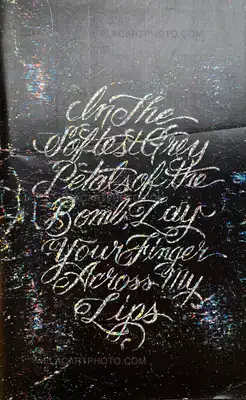 PLACARTPHOTO.COM
In The
Softest Grey
Petals of the
Bomb Lay
Your Finger
Across My
Lips
PLACARTPHOTO.COM